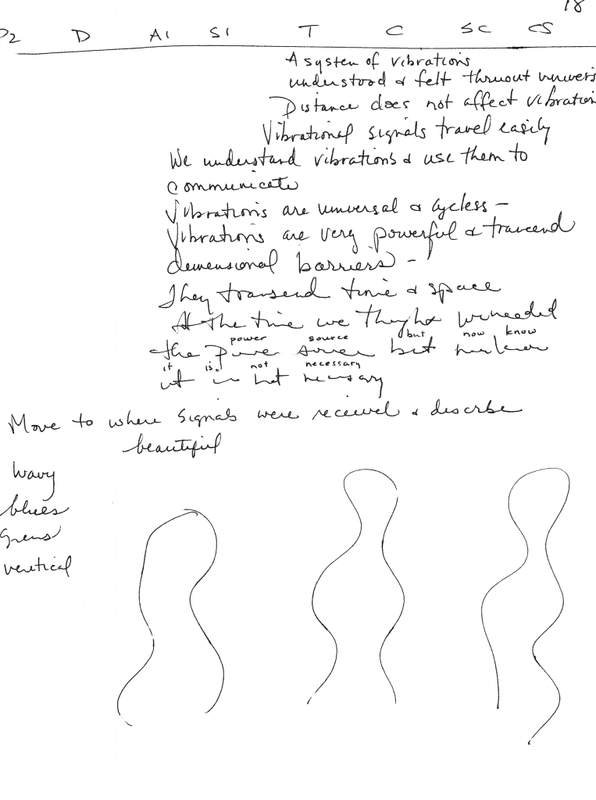 18
P2 D AI SI T C SC CS
A system of vibrations
understood & felt thruout univers
Distance does not affect vibration
Vibrational signals travel easily
We understand vibrations & use them to
communicate
Vibrations are universal & ageless -
Vibrations are very powerful & trancend
demensional barriers -
They transend time & space
At the time we thought we needed
power source but now know
the power source but now know
it is not necessary
it is not necessary
Move to where signals were received & describe
beautiful
wavy
blues
greens
veretical